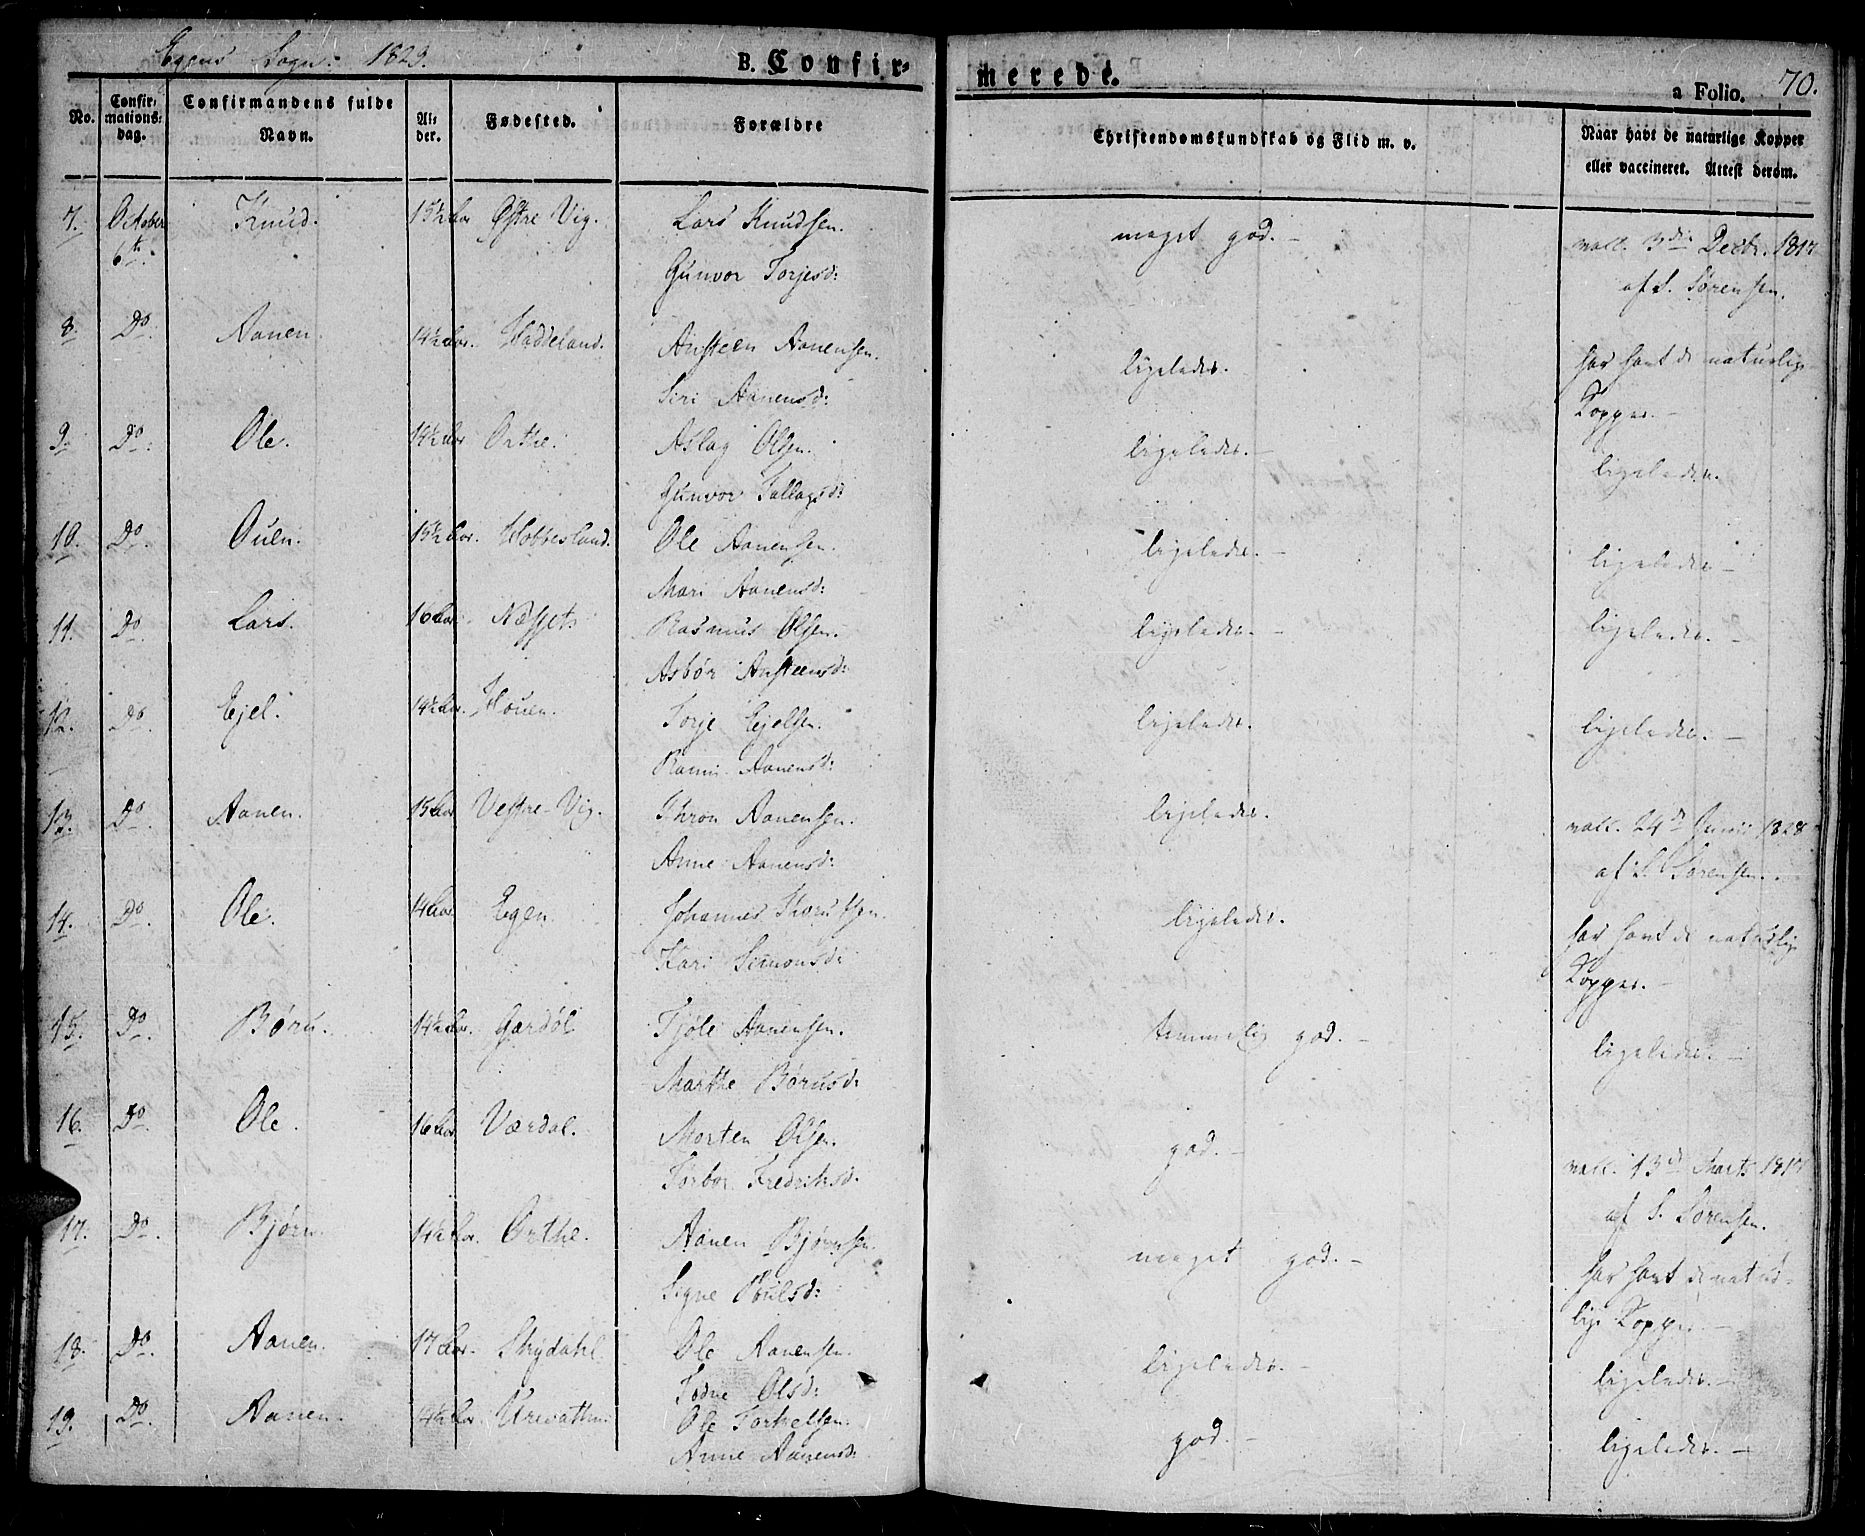 Egens Sogn. 1823.
B. Confir=
merede.
a Folio. 70.
No.
Confir-
mations-
dag.
Confirmandens fulde
Navn.
Al-
der.
Fødested.
Forældre
Christendomskundskab og Flid m. v.
Naar havt de naturlige Kopper
eller vaccineret. Attest derom.
7. October Knud. 15½ Aar Østre Vig. Lars Knudsen. meget god. – vacc. 3die Decbr. 1817
6te. Gunvor Torjesd: af S. Sørensen.
8. Do. Aanen. 14½ Aar. Haddeland. Ansteen Aanensen. ligeledes. har havt de naturlige
Siri Aanensd: Kopper. –
9. Do. Ole. 14½ Aar Orthe. Aslag Olsen. ligeledes. – ligeledes.
Gunvor Tallagsd:
10. Do. Ouen. 15½ Aar. Hobbesland. Ole Aanensen. ligeledes. – ligeledes –
Mari Aanensd:
11. Do. Lars. 16 Aar. Næsset Rasmus Olsen. ligeledes. – ligeledes. –
Asbør Ansteensd:
12. Do. Ejel. 14½ Aar. Houen. Torje Ejelsen. ligeledes. ligeledes. –
Aanensd:
13. Do. Aanen. 15 Aar Vestre-Vig. Thron Aanensen. ligeledes. vacc. 24de Junii 1828
Anne Aanensd: af S. Sørensen. –
14. Do. Ole. 14 Aar Egen Johannes ligeledes. har havt de naturlige
Kari Simonsd: Kopper. –
15. Do. Børu. 14½ Aar. Gardöl Tjöle Aanensen. temmelig god. – ligeledes. –
Marthe Börusd:
16. Do. Ole. 16 Aar Værdal. Morten Olsen. god. – vacc. 13de Marts 1817
Torbor Fredriksd. af S. Sørensen.
17. Do. Bjørn. 14½ Aar. Orthe. Aanen Bjørnsen. meget god. – har havt de natur=
Signe lige Kopper –
18. Do. Aanen. 17 Aar. Skydahl. Ole Aanensen. ligeledes. – ligeledes. –
Todne Olsd:
19. Do. Aanen. 14½ Aar. Urevathn. Ole Torkelsen. god. – ligeledes. –
Anne Aanensd: